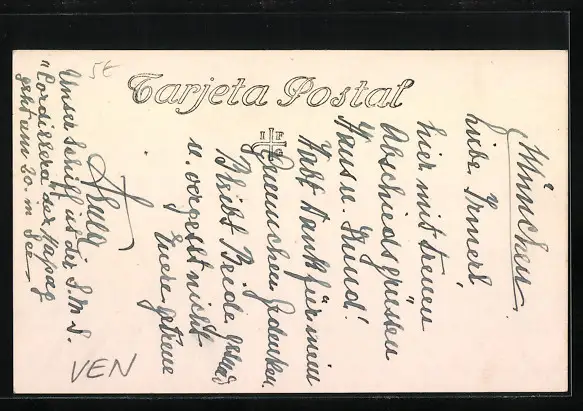 Tarjeta Postal
5€
München.
liebe. Irmerl
hier mit treuen
Abschiedsgrüssen
Haus u. Hund!
Habt Dank für mein
gedenken.
Bleibt Beide gesund
u. vergesst nicht
Euere getreue
Unser Schiff ist die S.M.S.
"Cordillera" der Hapag
geht am 20. in See
VEN